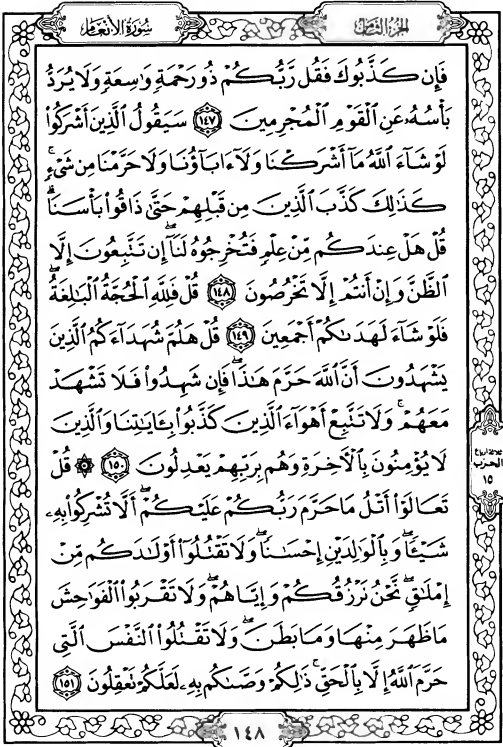 سُورَةُ الأَنْعَامِ
الجُزءُ الثَّامِنُ
فَإِن كَذَّبُوكَ فَقُل رَّبُّكُمْ ذُو رَحْمَةٍ وَٰسِعَةٍ وَلَا يُرَدُّ
بَأْسُهُۥ عَنِ ٱلْقَوْمِ ٱلْمُجْرِمِينَ ١٤٧ سَيَقُولُ ٱلَّذِينَ أَشْرَكُوا۟
لَوْ شَآءَ ٱللَّهُ مَآ أَشْرَكْنَا وَلَآ ءَابَآؤُنَا وَلَا حَرَّمْنَا مِن شَىْءٍ ۚ
كَذَٰلِكَ كَذَّبَ ٱلَّذِينَ مِن قَبْلِهِمْ حَتَّىٰ ذَاقُوا۟ بَأْسَنَا ۗ
قُلْ هَلْ عِندَكُم مِّنْ عِلْمٍ فَتُخْرِجُوهُ لَنَآ ۖ إِن تَتَّبِعُونَ إِلَّا
ٱلظَّنَّ وَإِنْ أَنتُمْ إِلَّا تَخْرُصُونَ ١٤٨ قُلْ فَلِلَّهِ ٱلْحُجَّةُ ٱلْبَـٰلِغَةُ ۖ
فَلَوْ شَآءَ لَهَدَىٰكُمْ أَجْمَعِينَ ١٤٩ قُلْ هَلُمَّ شُهَدَآءَكُمُ ٱلَّذِينَ
يَشْهَدُونَ أَنَّ ٱللَّهَ حَرَّمَ هَـٰذَا ۖ فَإِن شَهِدُوا۟ فَلَا تَشْهَدْ
مَعَهُمْ ۚ وَلَا تَتَّبِعْ أَهْوَآءَ ٱلَّذِينَ كَذَّبُوا۟ بِـَٔايَـٰتِنَا وَٱلَّذِينَ
لَا يُؤْمِنُونَ بِٱلْـَٔاخِرَةِ وَهُم بِرَبِّهِمْ يَعْدِلُونَ ١٥٠ ۞ قُلْ
تَعَالَوْا۟ أَتْلُ مَا حَرَّمَ رَبُّكُمْ عَلَيْكُمْ ۖ أَلَّا تُشْرِكُوا۟ بِهِۦ
شَيْـًٔا ۖ وَبِٱلْوَٰلِدَيْنِ إِحْسَـٰنًا ۖ وَلَا تَقْتُلُوٓا۟ أَوْلَـٰدَكُم مِّنْ
إِمْلَـٰقٍ ۖ نَّحْنُ نَرْزُقُكُمْ وَإِيَّاهُمْ ۖ وَلَا تَقْرَبُوا۟ ٱلْفَوَٰحِشَ
مَا ظَهَرَ مِنْهَا وَمَا بَطَنَ ۖ وَلَا تَقْتُلُوا۟ ٱلنَّفْسَ ٱلَّتِى
حَرَّمَ ٱللَّهُ إِلَّا بِٱلْحَقِّ ۚ ذَٰلِكُمْ وَصَّىٰكُم بِهِۦ لَعَلَّكُمْ تَعْقِلُونَ ١٥١
ثلاثة أرباع
الحزب
١٥
١٤٨